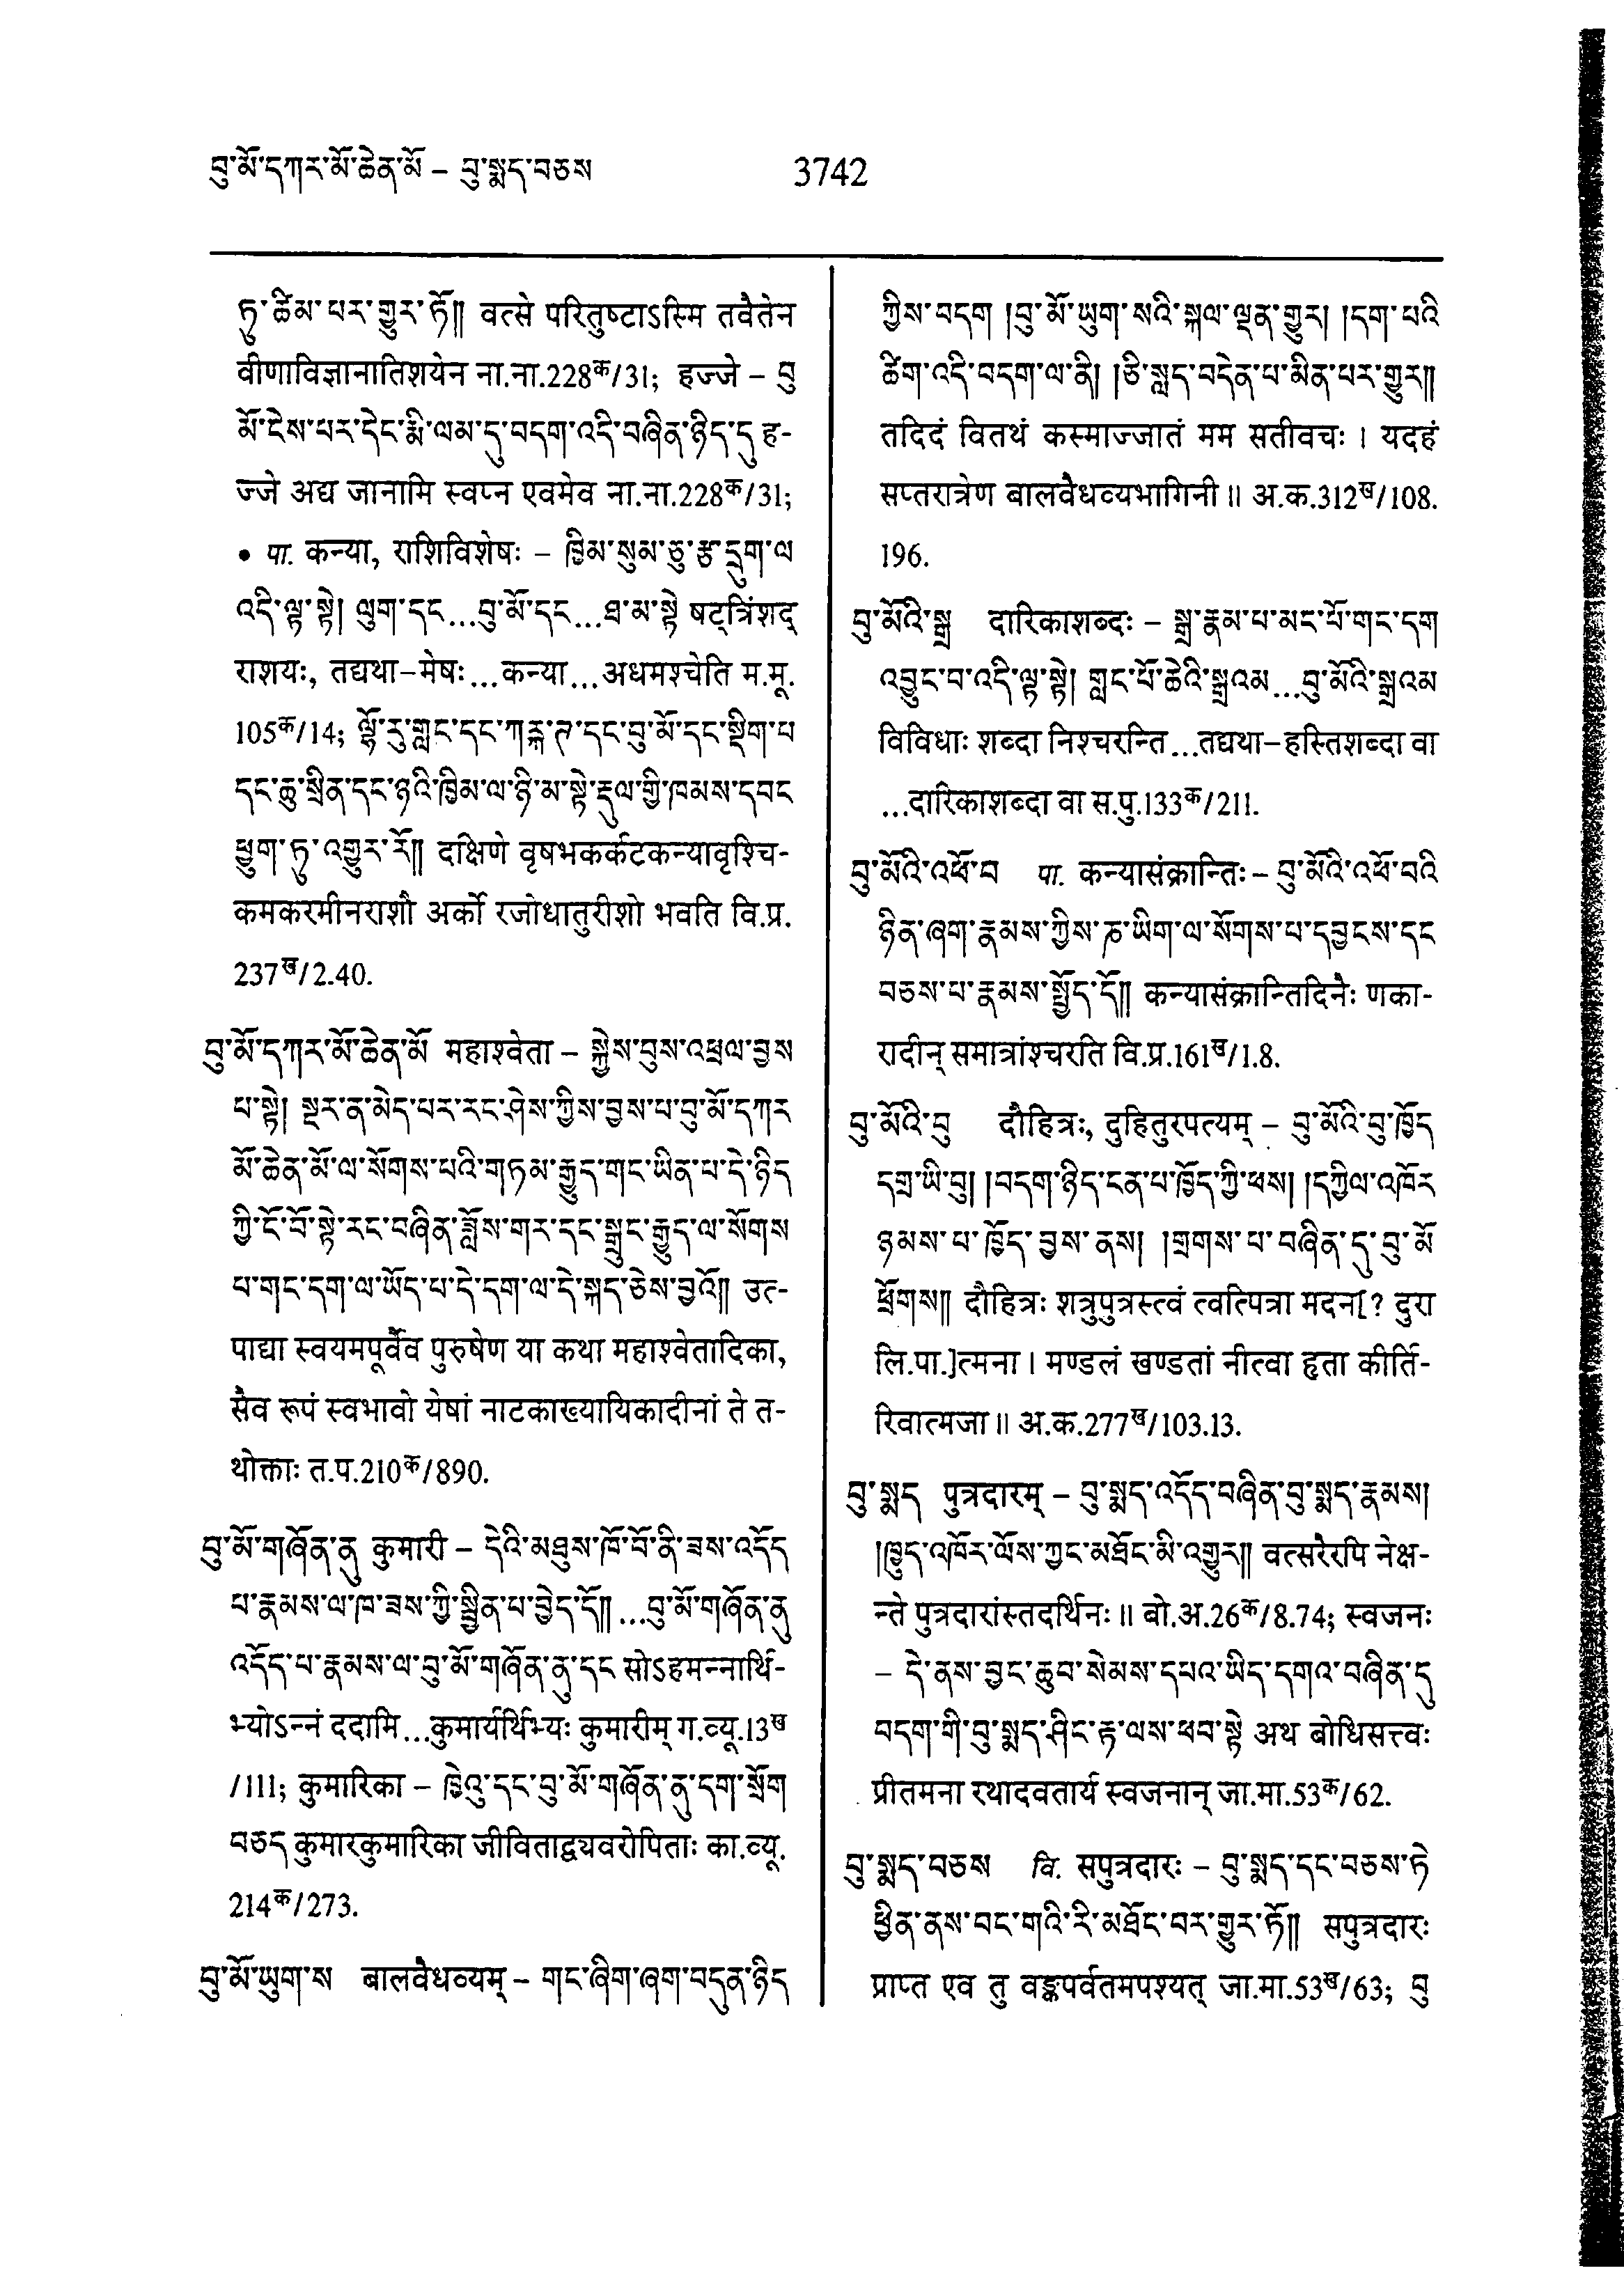 བུ་མོ་དཀར་མོ་ཆེན་མོ – བུ་སྨད་བཅས
3742
ཏུ་ཚིམ་པར་གྱུར་ཏོ༎ वत्से परितुष्टाऽस्मि तवैतेन
वीणाविज्ञानातिशयेन ना.ना.228क/31; हज्जे – བུ
མོ་ངེས་པར་དེང་རྨི་ལམ་དུ་བདག་འདི་བཞིན་ཉིད་དུ ह-
ज्जे अद्य जानामि स्वप्न एवमेव ना.ना.228क/31;
• पा. कन्या, राशिविशेषः – ཁྱིམ་སུམ་ཅུ་རྩ་དྲུག་ལ
འདི་ལྟ་སྟེ། ལུག་དང...བུ་མོ་དང...ཐ་མ་སྟེ षट्त्रिंशद्
राशयः, तद्यथा–मेषः...कन्या...अधमश्चेति म.मू.
105क/14; ལྷོ་རུ་གླང་དང་ཀརྐ་ཊ་དང་བུ་མོ་དང་སྡིག་པ
དང་ཆུ་སྲིན་དང་ཉའི་ཁྱིམ་ལ་ཉི་མ་སྟེ་རྡུལ་གྱི་ཁམས་དབང
ཕྱུག་ཏུ་འགྱུར་རོ༎ दक्षिणे वृषभकर्कटकन्यावृश्चि-
कमकरमीनराशौ अर्को रजोधातुरीशो भवति वि.प्र.
237ख/2.40.
བུ་མོ་དཀར་མོ་ཆེན་མོ महाश्वेता – སྐྱེས་བུས་འཕྲལ་བྱས
པ་སྟེ། སྔར་ན་མེད་པར་རང་ཤེས་ཀྱིས་བྱས་པ་བུ་མོ་དཀར
མོ་ཆེན་མོ་ལ་སོགས་པའི་གཏམ་རྒྱུད་གང་ཡིན་པ་དེ་ཉིད
ཀྱི་ངོ་བོ་སྟེ་རང་བཞིན་ཟློས་གར་དང་སྒྲུང་རྒྱུད་ལ་སོགས
པ་གང་དག་ལ་ཡོད་པ་དེ་དག་ལ་དེ་སྐད་ཅེས་བྱའོ༎ उत-
पाद्या स्वयमपूर्वैव पुरुषेण या कथा महाश्वेतादिका,
सैव रूपं स्वभावो येषां नाटकाख्यायिकादीनां ते त-
थोक्ताः त.प.210क/890.
བུ་མོ་གཞོན་ནུ कुमारी – དེའི་མཐུས་ཁོ་བོ་ནི་ཟས་འདོད
པ་རྣམས་ལ་ཁ་ཟས་ཀྱི་སྦྱིན་པ་བྱེད་དོ༎ ...བུ་མོ་གཞོན་ནུ
འདོད་པ་རྣམས་ལ་བུ་མོ་གཞོན་ནུ་དང सोऽहमन्नार्थि-
भ्योऽन्नं ददामि...कुमार्यर्थिभ्यः कुमारीम् ग.व्यू.13ख
/111; कुमारिका – ཁྱེའུ་དང་བུ་མོ་གཞོན་ནུ་དག་སྲོག
བཅད कुमारकुमारिका जीविताद्व्यवरोपिताः का.व्यू.
214क/273.
བུ་མོ་ཡུག་ས बालवैधव्यम् – གང་ཞིག་ཞག་བདུན་ཉིད
ཀྱིས་བདག །བུ་མོ་ཡུག་སའི་སྐལ་ལྡན་གྱུར། །དག་པའི
ཚིག་འདི་བདག་ལ་ནི། །ཅི་སླད་བདེན་པ་མིན་པར་གྱུར༎
तदिदं वितथं कस्माज्जातं मम सतीवचः । यदहं
सप्तरात्रेण बालवैधव्यभागिनी ॥ अ.क.312ख/108.
196.
བུ་མོའི་སྒྲ दारिकाशब्दः – སྒྲ་རྣམ་པ་མང་པོ་གང་དག
འབྱུང་བ་འདི་ལྟ་སྟེ། གླང་པོ་ཆེའི་སྒྲའམ...བུ་མོའི་སྒྲའམ
विविधाः शब्दा निश्चरन्ति...तद्यथा–हस्तिशब्दा वा
...दारिकाशब्दा वा स.पु.133क/211.
བུ་མོའི་འཕོ་བ पा. कन्यासंक्रान्तिः – བུ་མོའི་འཕོ་བའི
ཉིན་ཞག་རྣམས་ཀྱིས་ཎ་ཡིག་ལ་སོགས་པ་དབྱངས་དང
བཅས་པ་རྣམས་སྤྱོད་དོ༎ कन्यासंक्रान्तिदिनैः णका-
रादीन् समात्रांश्चरति वि.प्र.161ख/1.8.
བུ་མོའི་བུ दौहित्रः, दुहितुरपत्यम् – བུ་མོའི་བུ་ཁྱོད
དགྲ་ཡི་བུ། །བདག་ཉིད་ངན་པ་ཁྱོད་ཀྱི་ཕས། །དཀྱིལ་འཁོར
ཉམས་པ་ཁྱོད་བྱས་ནས། །གྲགས་པ་བཞིན་དུ་བུ་མོ
ཕྲོགས༎ दौहित्रः शत्रुपुत्रस्त्वं त्वत्पित्रा मदन[? दुरा
लि.पा.]त्मना । मण्डलं खण्डतां नीत्वा हृता कीर्ति-
रिवात्मजा ॥ अ.क.277ख/103.13.
བུ་སྨད पुत्रदारम् – བུ་སྨད་འདོད་བཞིན་བུ་སྨད་རྣམས།
།ཁྱུད་འཁོར་ལོས་ཀྱང་མཐོང་མི་འགྱུར༎ वत्सरैरपि नेक्ष-
न्ते पुत्रदारांस्तदर्थिनः ॥ बो.अ.26क/8.74; स्वजनः
– དེ་ནས་བྱང་ཆུབ་སེམས་དཔའ་ཡིད་དགའ་བཞིན་དུ
བདག་གི་བུ་སྨད་ཤིང་རྟ་ལས་ཕབ་སྟེ अथ बोधिसत्त्वः
प्रीतमना रथादवतार्य स्वजनान् जा.मा.53क/62.
བུ་སྨད་བཅས वि. सपुत्रदारः – བུ་སྨད་དང་བཅས་ཏེ
ཕྱིན་ནས་བང་གའི་རི་མཐོང་བར་གྱུར་ཏོ༎ सपुत्रदारः
प्राप्त एव तु वङ्कपर्वतमपश्यत् जा.मा.53ख/63; བུ